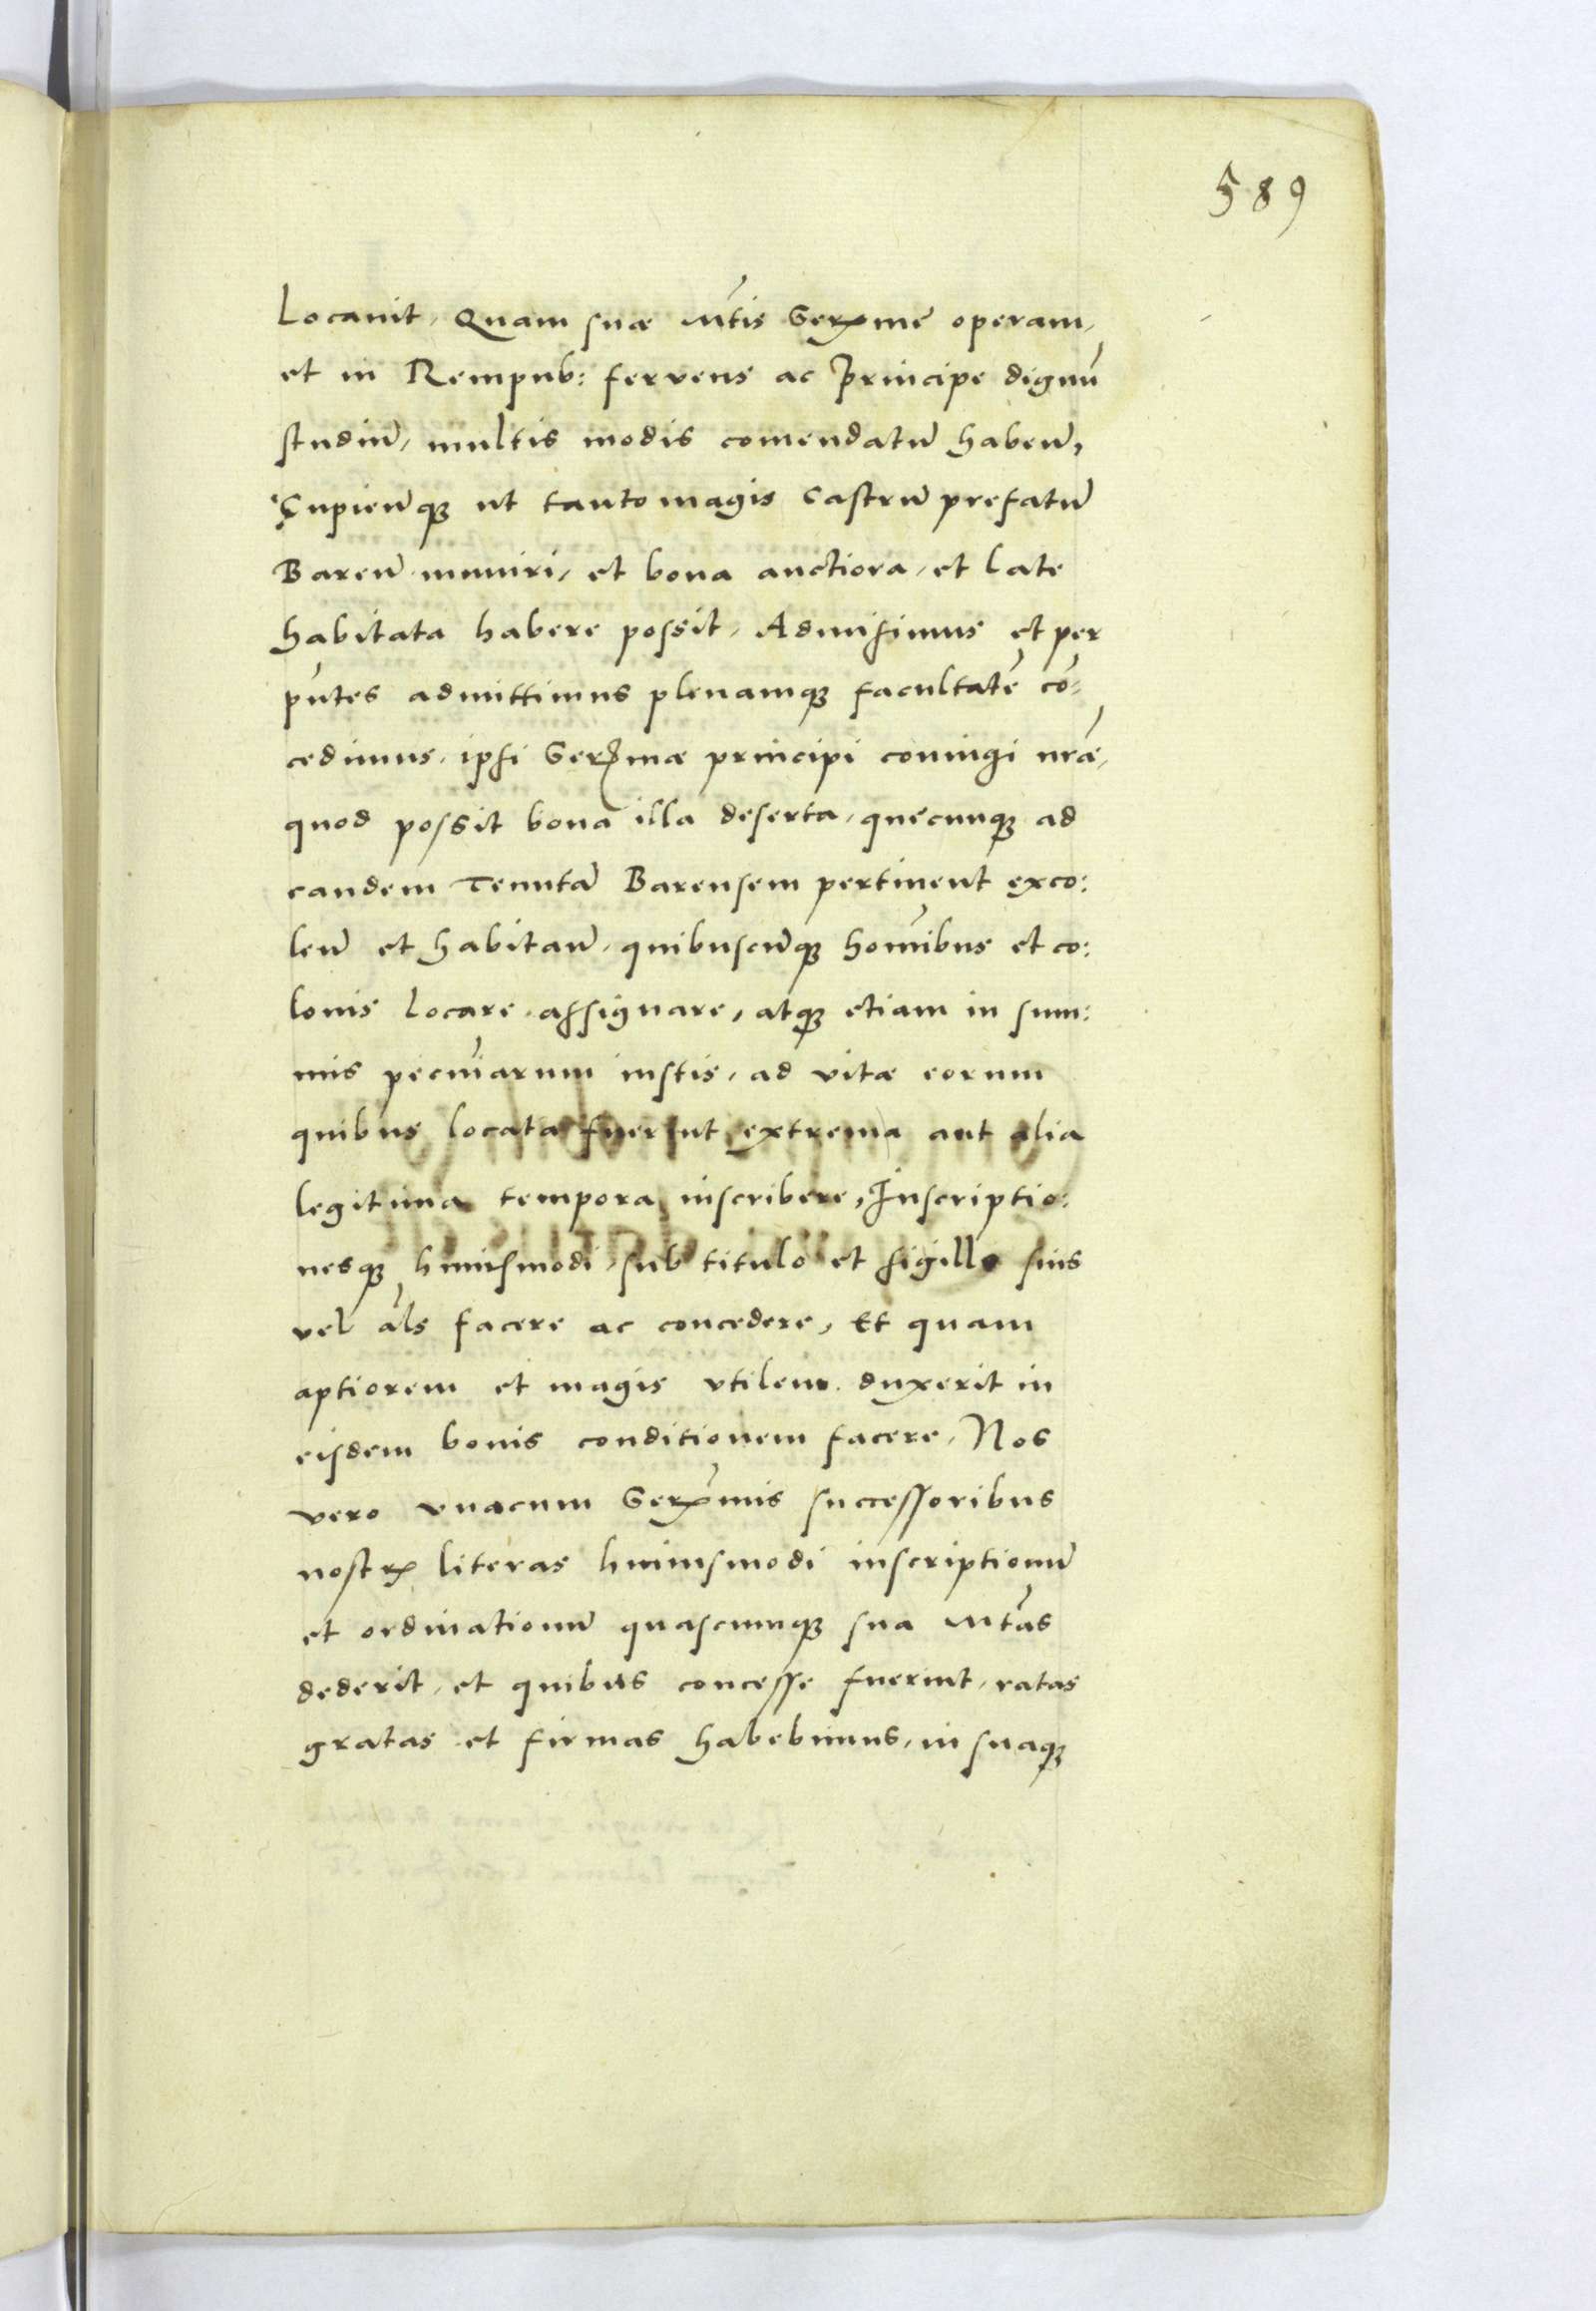 589
Locauit, Quam suæ Mtis Serme operam,
et in Rempub: fervens ac Principe dignū
studiū, multis modis comendatū habeñ,
Cupieñq ut tanto magis Castrū prefatū
Bareñ muniri, et bona auctiora, et Late
habitata habere possit, Admisimus et per
pn̄tes admittimus plenamq facultatē cō:
cedimus, ipsi Sermæ principi coniugi nræ,
quod possit bona illa deserta, quecunq ad
eandem Tenutā Barensem pertinent exco:
leñ et habitañ, quibuscūq hominibus et co:
lonis Locare assignare, atq etiam in sum:
mis pecuniarum iustis, ad vitæ eorum
quibus locata fuerint extrema aut alia
legitima tempora inscribere, Inscriptio:
nesq huiusmodi sub titulo et sigillo suis
vel als facere ac concedere, Et quam
aptiorem et magis vtilem duxerit in
eisdem bonis conditionem facere, Nos
vero vnacum Sermis successoribus
nostrꝝ literas huiusmodi inscriptionū
et ordinationū quascunq sua Mtas
dederit, et quibus concesse fuerint, ratas
gratas et firmas habebimus, in suaq